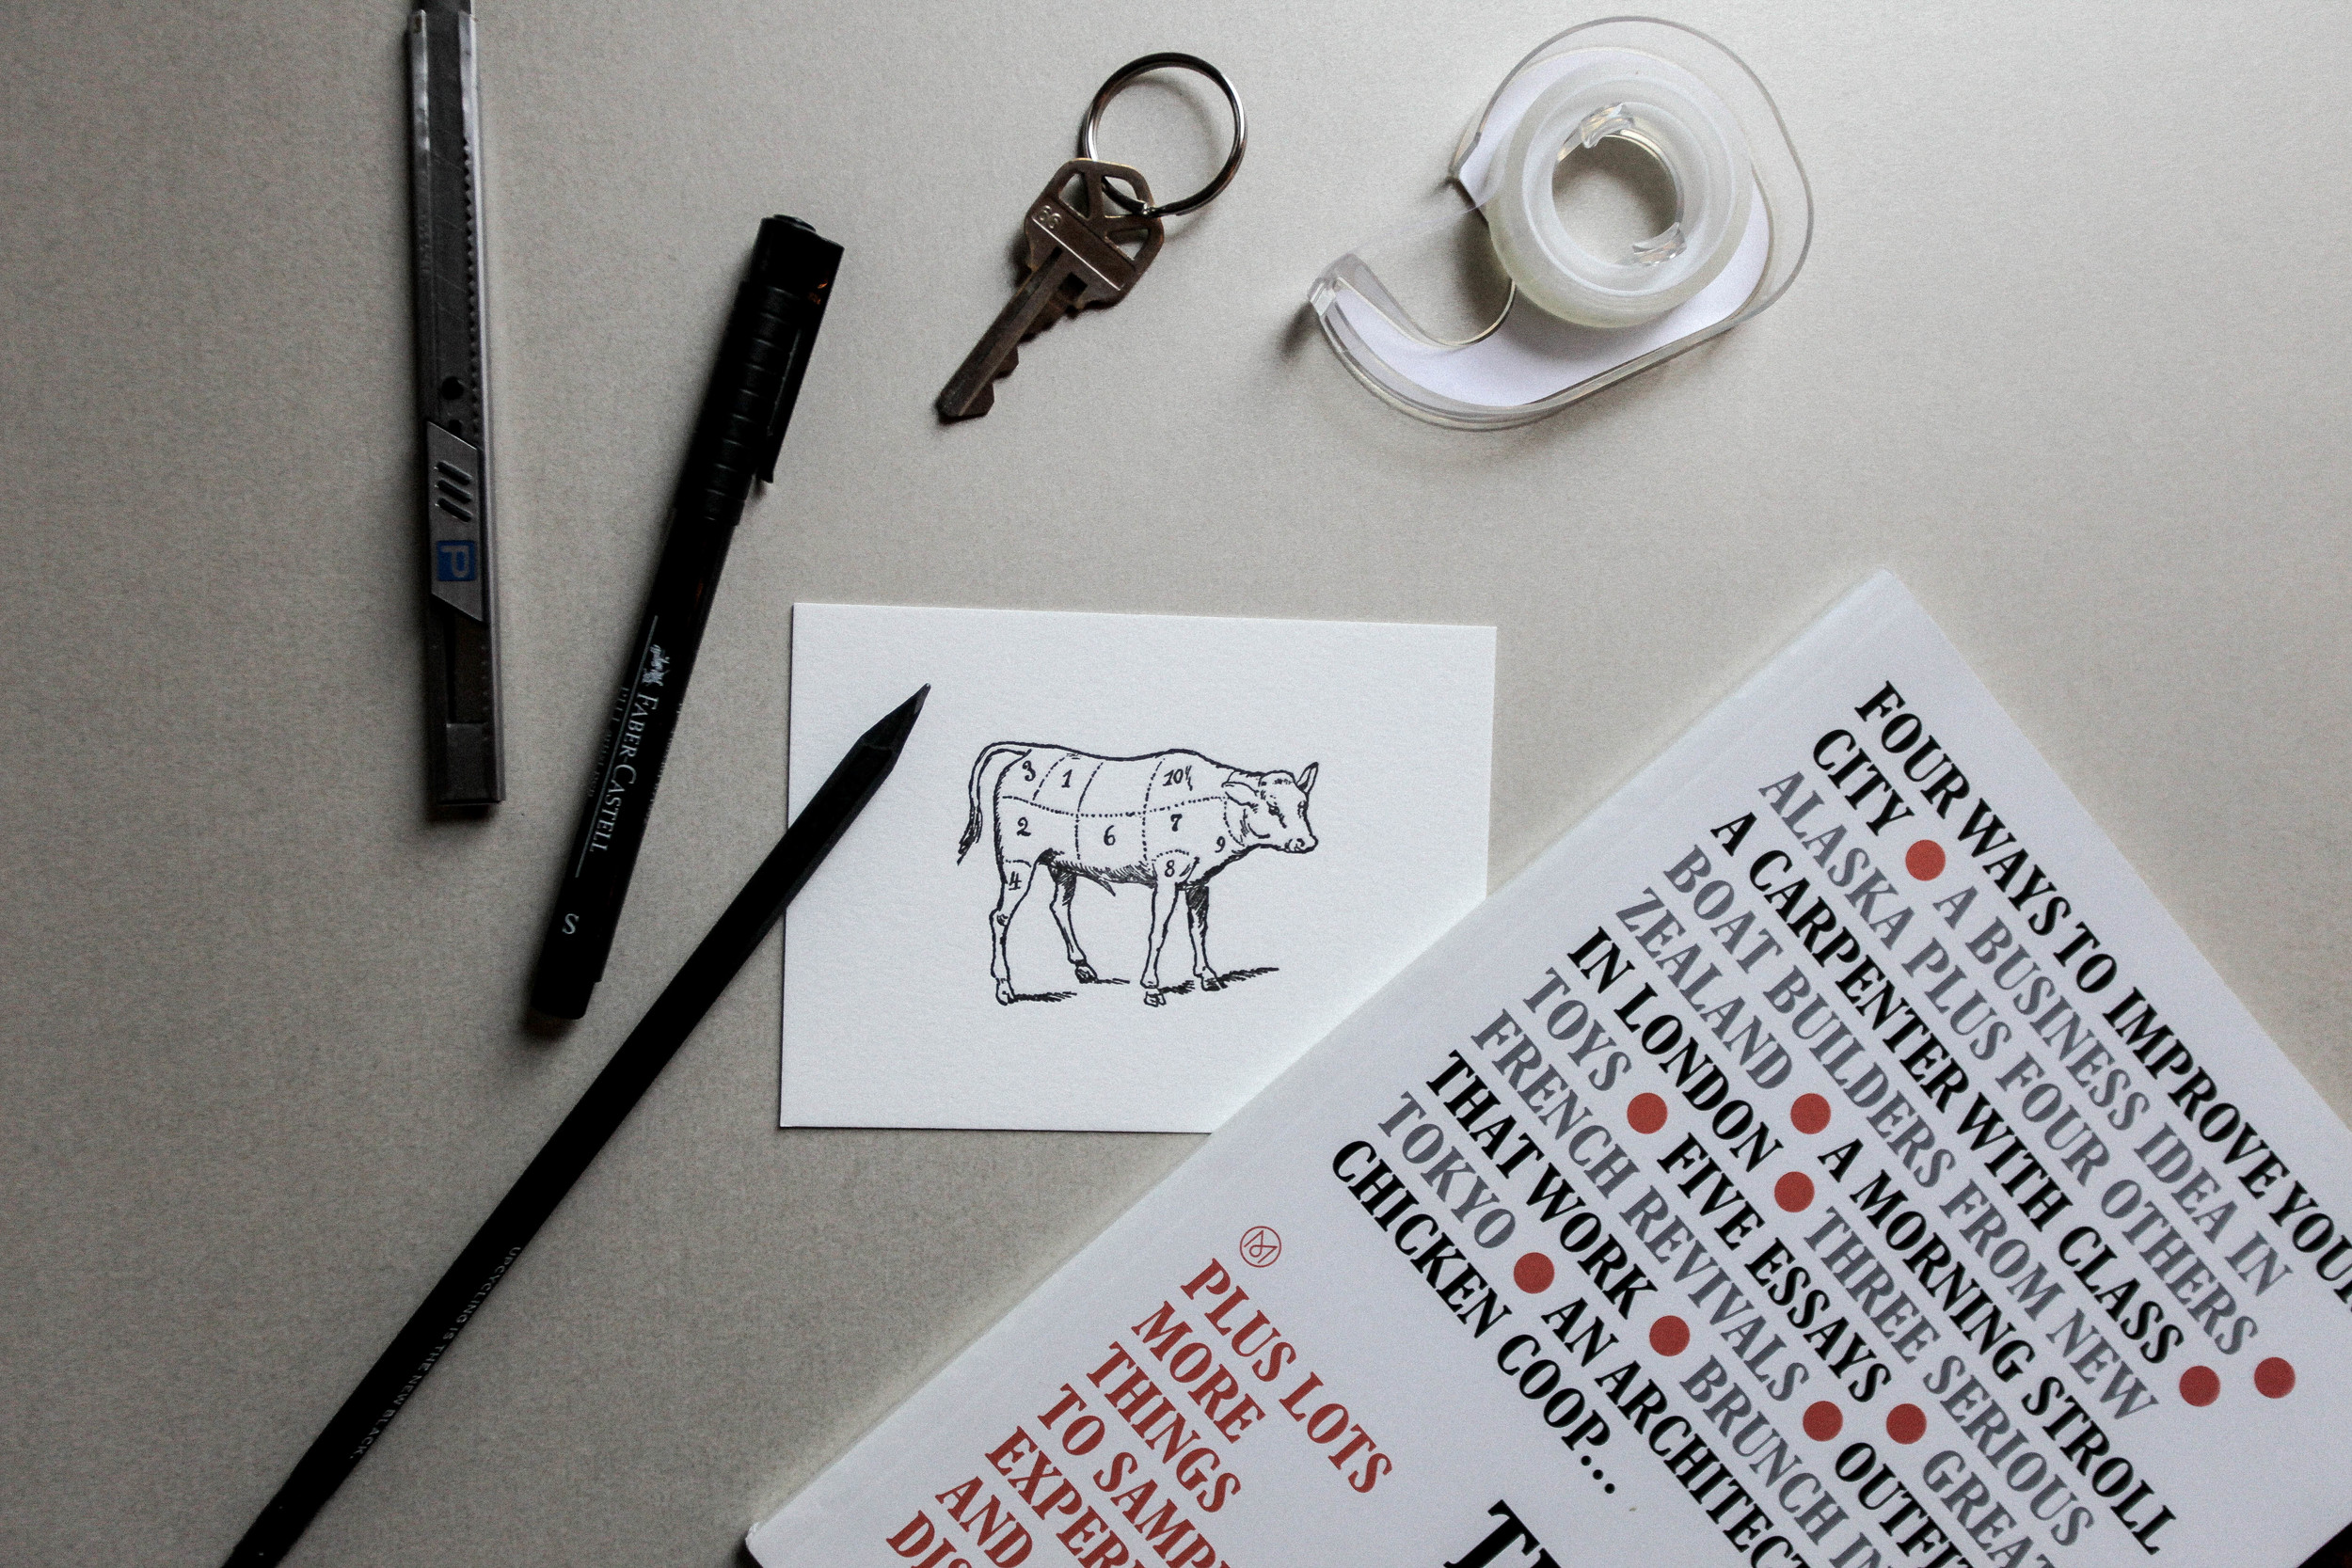 66
P
FABER-CASTELL
S
UPCYCLING IS THE NEW BLACK.
3
1
10
2
6
7
9
8
4
FOUR WAYS TO IMPROVE YOUR
CITY ● A BUSINESS IDEA IN
ALASKA PLUS FOUR OTHERS ●
A CARPENTER WITH CLASS ●
BOAT BUILDERS FROM NEW
ZEALAND ● A MORNING STROLL
IN LONDON ● THREE SERIOUS
TOYS ● FIVE ESSAYS ● GREAT
FRENCH REVIVALS ● OUTFITS
THAT WORK ● BRUNCH IN
TOKYO ● AN ARCHITECT
CHICKEN COOP...
PLUS LOTS
MORE
THINGS
TO SAMPLE
AND